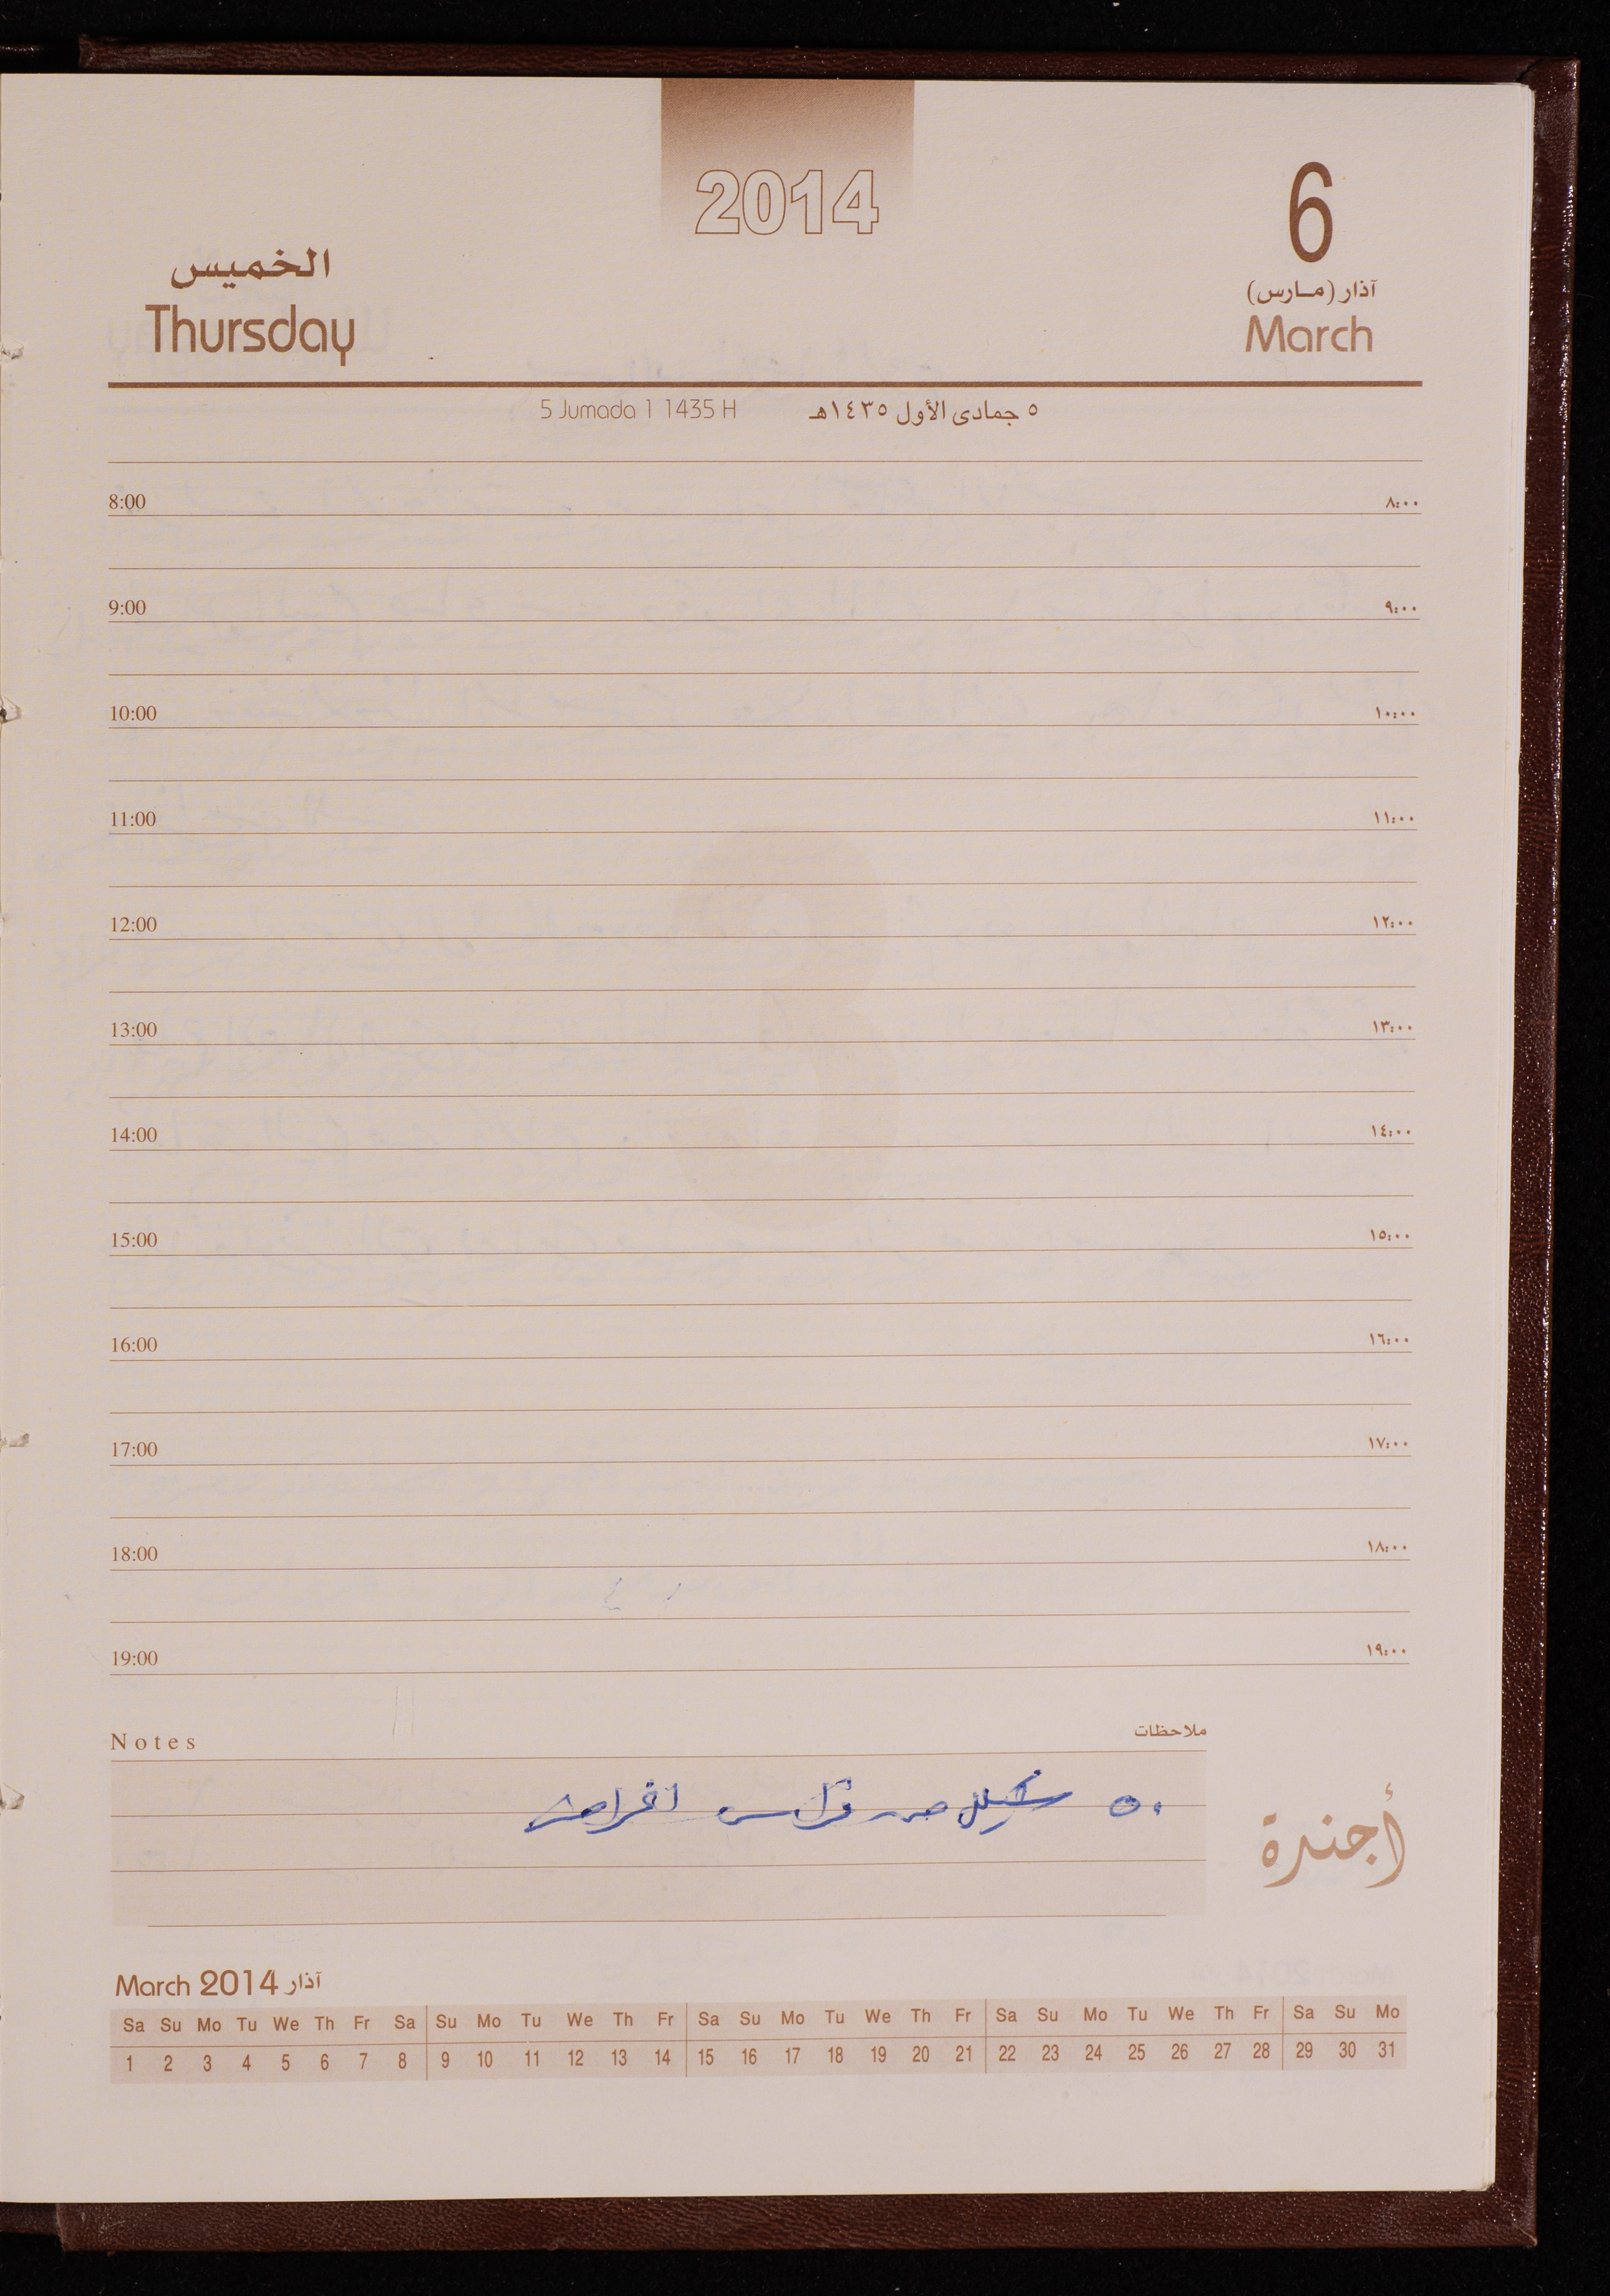 2014
6
الخميس
آذار (مارس)
Thursday
March
5 Jumada 1 1435 H ٥ جمادى الأول ١٤٣٥هـ
8:00 ٨:٠٠
9:00 ٩:٠٠
10:00 ١٠:٠٠
11:00 ١١:٠٠
12:00 ١٢:٠٠
13:00 ١٣:٠٠
14:00 ١٤:٠٠
15:00 ١٥:٠٠
16:00 ١٦:٠٠
17:00 ١٧:٠٠
18:00 ١٨:٠٠
19:00 ١٩:٠٠
Notes ملاحظات
٥٠ من
أجندة
March 2014 آذار
Sa Su Mo Tu We Th Fr Sa Su Mo Tu We Th Fr Sa Su Mo Tu We Th Fr Sa Su Mo Tu We Th Fr Sa Su Mo
1 2 3 4 5 6 7 8 9 10 11 12 13 14 15 16 17 18 19 20 21 22 23 24 25 26 27 28 29 30 31